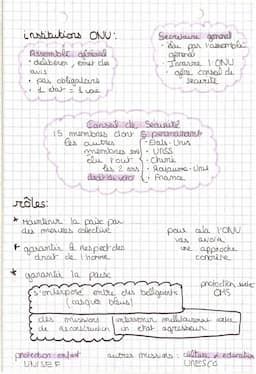 institutions ONU:
Assemblée général
• délibérer, émet des avis
• pas obligatoire
• 1 état = 1 voix
Secrétaire général
• élu par l'assemblée général
• Incarne l'ONU
• gère conseil de sécurité
Conseil de Sécurité
15 membres dont 5 permanent
les autres membres
élu tout les 2 ans
droit de veto
• États-Unis
• URSS
• Chine
• Royaume-Uni
• France
rôles:
* Maintenir la paix par des mesures collective
* garantir le respect des droit de l'homme
pour cela l'ONU
une approche
* garantir la paix
s'interposé entre des belligérants
(casques bleus)
protection santé
OMS
des missions
de reconstruction
intervenir militairement contre
un état agresseur
protection enfant
UNISEF
autres missions: culture et éducation
UNESCO